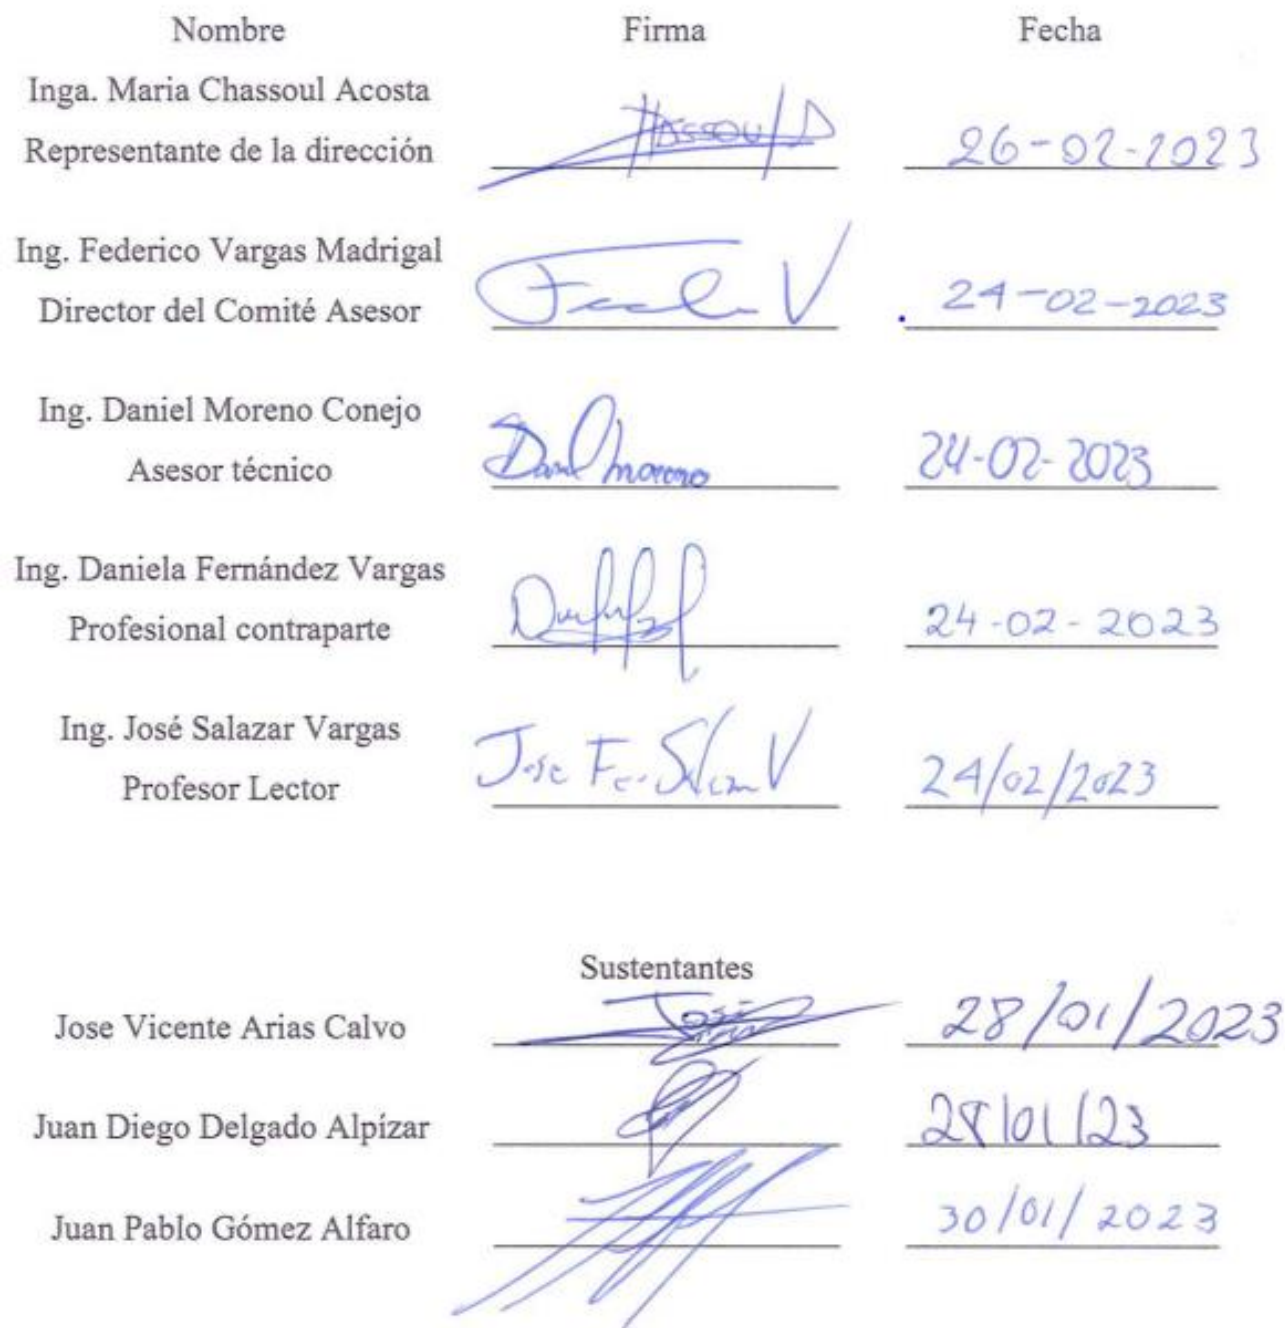 Nombre Firma Fecha
Inga. Maria Chassoul Acosta
Representante de la dirección 26-02-2023
Ing. Federico Vargas Madrigal
Director del Comité Asesor 24-02-2023
Ing. Daniel Moreno Conejo
Asesor técnico Daniel Moreno 24-02-2023
Ing. Daniela Fernández Vargas
Profesional contraparte 24-02-2023
Ing. José Salazar Vargas
Profesor Lector Jose 24/02/2023
Sustentantes
Jose Vicente Arias Calvo José 28/01/2023
Juan Diego Delgado Alpízar 28/01/23
Juan Pablo Gómez Alfaro 30/01/2023